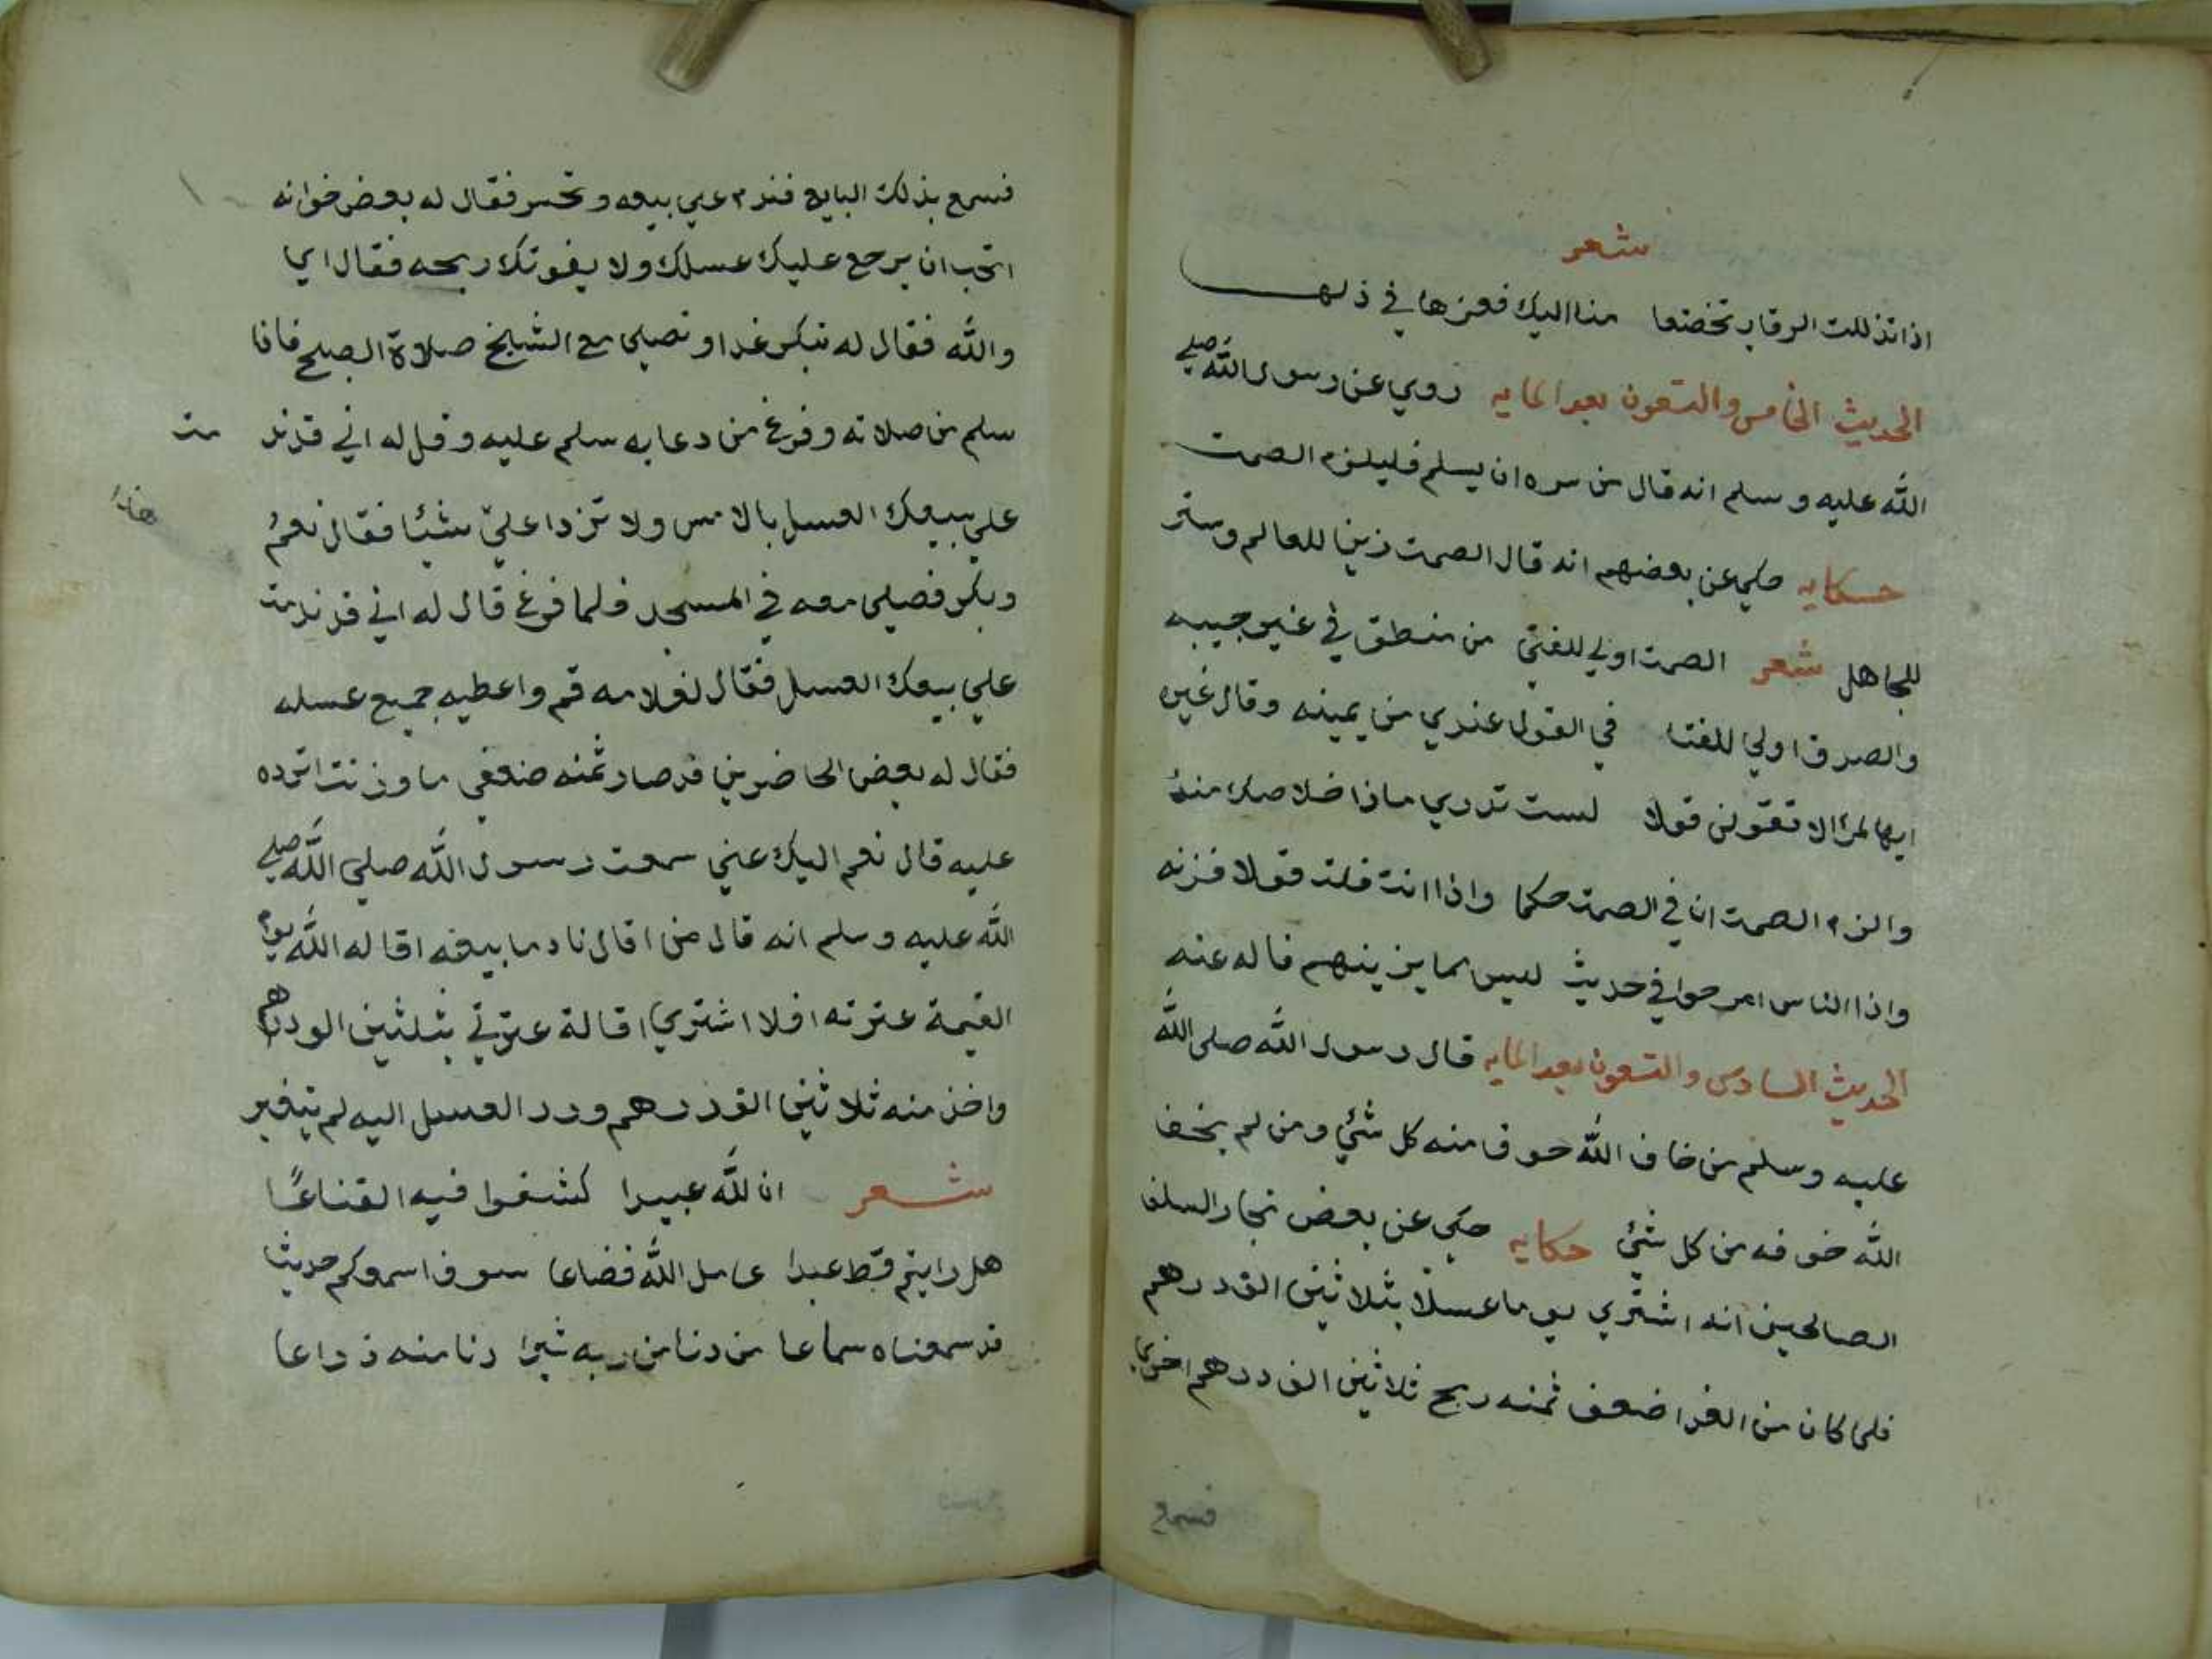 شعر
اذا تذللت الرقاب تخضعا منا اليك فعزها في ذلها
الحديث الخامس والتسعون بعد المايه روي عن رسول الله صلي
الله عليه وسلم انه قال من سره ان يسلم فليلزم الصمت
حكايه حكي عن بعضهم انه قال الصمت زينا للعالم وستر
للجاهل شعر الصمت اولي للفتي من منطق في غير حينه
والصدق اولي للفتا في القول عندي من يمينه وقال غيره
ايها لمرالا تقولن قولا لست تدري ماذا خلاصك منه
والزم الصمت ان في الصمت حكما واذا انت قلت قولا فزنه
واذا الناس امرحوا في حديث ليس مما يزينهم فاله عنه
الحديث السادس والتسعون بعد المايه قال رسول الله صلي الله
عليه وسلم من خاف الله خوف منه كل شئ ومن لم يخف
الله خوفه من كل شئ حكايه حكي عن بعض تجار السلف
الصالحين انه اشتري يوما عسلا بثلاثين الف درهم
فلما كان من الغدا ضعف ثمنه ربح ثلاثين الف درهم اخري
فسمع
فسمع بذلك البايع فندم علي بيعه وتحسر فقال له بعض خوانه
اتحب ان يرجع عليك عسلك ولا يفوتك ربحه فقال اي
والله فقال له تبكر غدا وتصلي مع الشيخ صلاة الصبح فاذا
سلم من صلاته وفرغ من دعايه سلم عليه وقل له اني قد ند مت
علي بيعك العسل بالامس ولا تزدا علي شيئا فقال نعم
وبكر فصلي معه في المسجد فلما فرغ قال له اني قد ندمت
علي بيعك العسل فقال لغلامه قم واعطيه جميع عسله
فقال له بعض الحاضرين قد صار ثمنه ضعفي ما وزنت اترده
عليه قال نعم اليك عني سمعت رسول الله صلي الله صلي
الله عليه وسلم انه قال من اقال نادما بيعه اقاله الله يوم
القيمة عثرته افلا اشتري اقالة عثرتي بثلثين الودرهم
واخذ منه ثلاثين الف درهم ورد العسل اليه لم يتغير
شعر ان لله عبيدا كشفوا فيه القناعا
هل رايتم قط عبدا عامل الله فضاعا سوف اسمعكم حديث
قد سمعناه سماعا من دنا من ربه شبرا دنا منه ذراعا